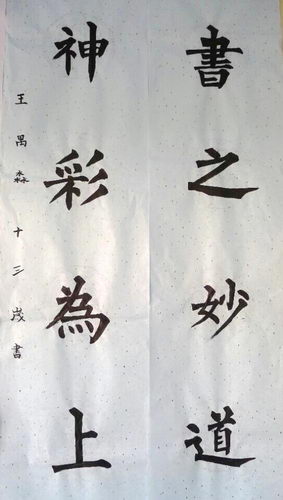 書之妙道
神彩為上
王禺淼十三歲書